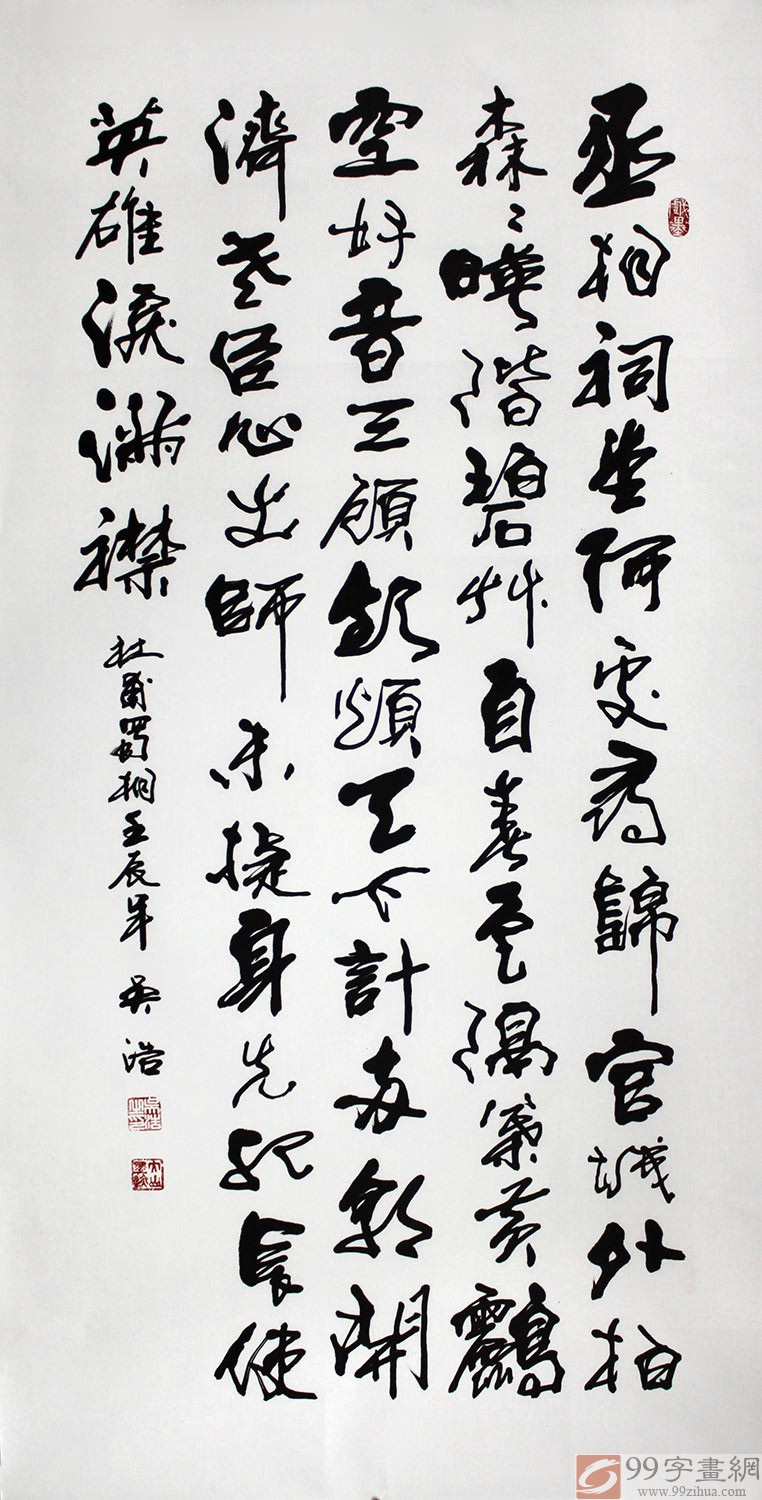 丞相祠堂何處尋錦官城外柏
森〻暎階碧艸自春色隔葉黄鸝
空好音三顧頻煩天下計兩朝開
濟老臣心出師未捷身先死長使
英雄淚滿襟
杜甫蜀相壬辰年 吴浩
99字畫網
www.99zihua.com